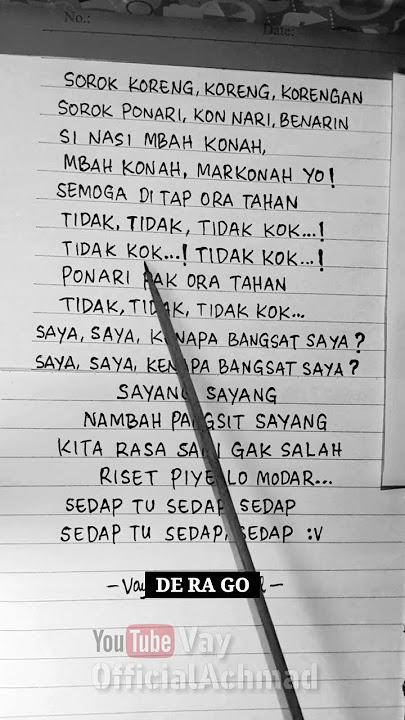 No.:
Date:
SOROK KORENG, KORENG, KORENGAN
SOROK PONARI, KON NARI, BENARIN
SI NASI MBAH KONAH,
MBAH KONAH, MARKONAH YO!
SEMOGA DI TAP ORA TAHAN
TIDAK, TIDAK, TIDAK KOK...!
TIDAK KOK...! TIDAK KOK...!
PONARI PAK ORA TAHAN
TIDAK, TIDAK, TIDAK KOK...
SAYA, SAYA, KENAPA BANGSAT SAYA?
SAYA, SAYA, KENAPA BANGSAT SAYA?
SAYANG SAYANG
NAMBAH PANGSIT SAYANG
KITA RASA SAPI GAK SALAH
RISET PIYE LO MODAR...
SEDAP TU SEDAP, SEDAP
SEDAP TU SEDAP, SEDAP :V
DE RA GO
YouTube Vay
OfficialAchmad